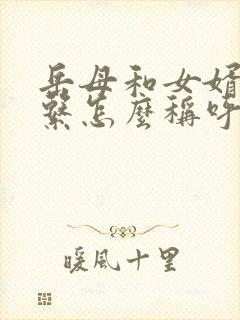 岳母和女婿
繫怎麼稱呼
暖風十里